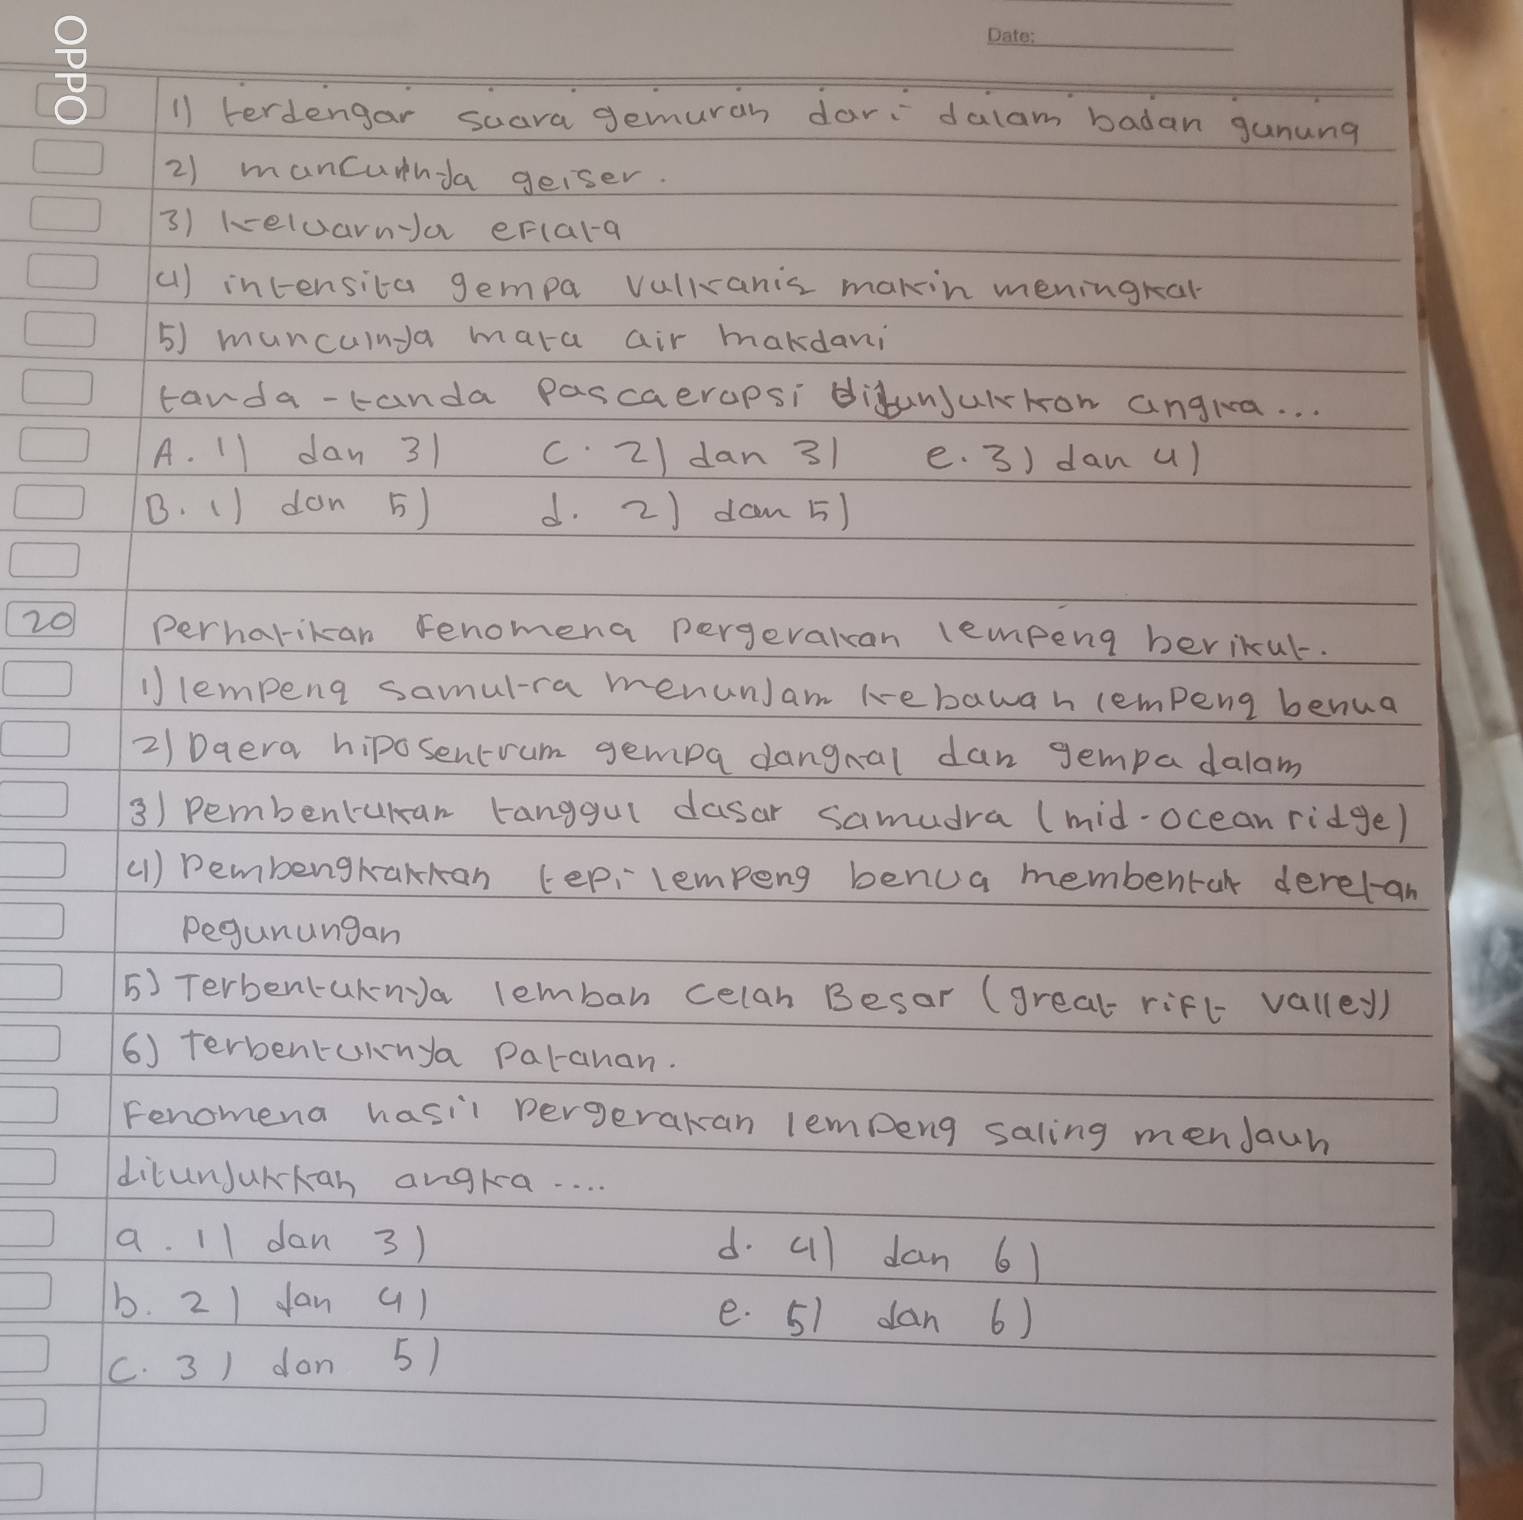 OPPO
Date:
1) terdengar suara gemurah dari dalam badan gunung
2) muncunnya geiser.
3) keluarnya eflata
4) intensita gempa vulkanis makin meningkat
5) munculnya mata air makdani
tanda-tanda pascaerupsi ditunjukkon angka...
A. 1) dan 3) C. 2) dan 3) e. 3) dan 4)
B. 1) dan 5) d. 2) dan 5)
20 perhatikan fenomena pergerakan lempeng berikut.
1) lempeng samutra menunjam kebawah lempeng benua
2) Daera hiposentrum gempa dangkal dan gempa dalam
3) pembentukan tanggul dasar samudra (mid-ocean ridge)
4) pembengkakkan tepi lempeng benua membentuk deretan
pegunungan
5) Terbentuknya lembah celah Besar (great rift valley)
6) Terbentuknya patahan.
Fenomena hasil pergerakan lempeng saling menjauh
ditunjukkan angka....
a. 1) dan 3) d. 4) dan 6)
b. 2) dan 4) e. 5) dan 6)
c. 3) dan 5)